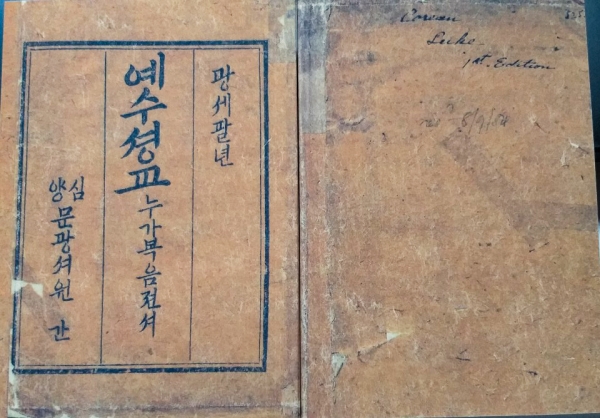 광셔팔년
예수셩교 누가복음젼셔
심양 문광셔원 간
Corean
Luke.
1st. Edition